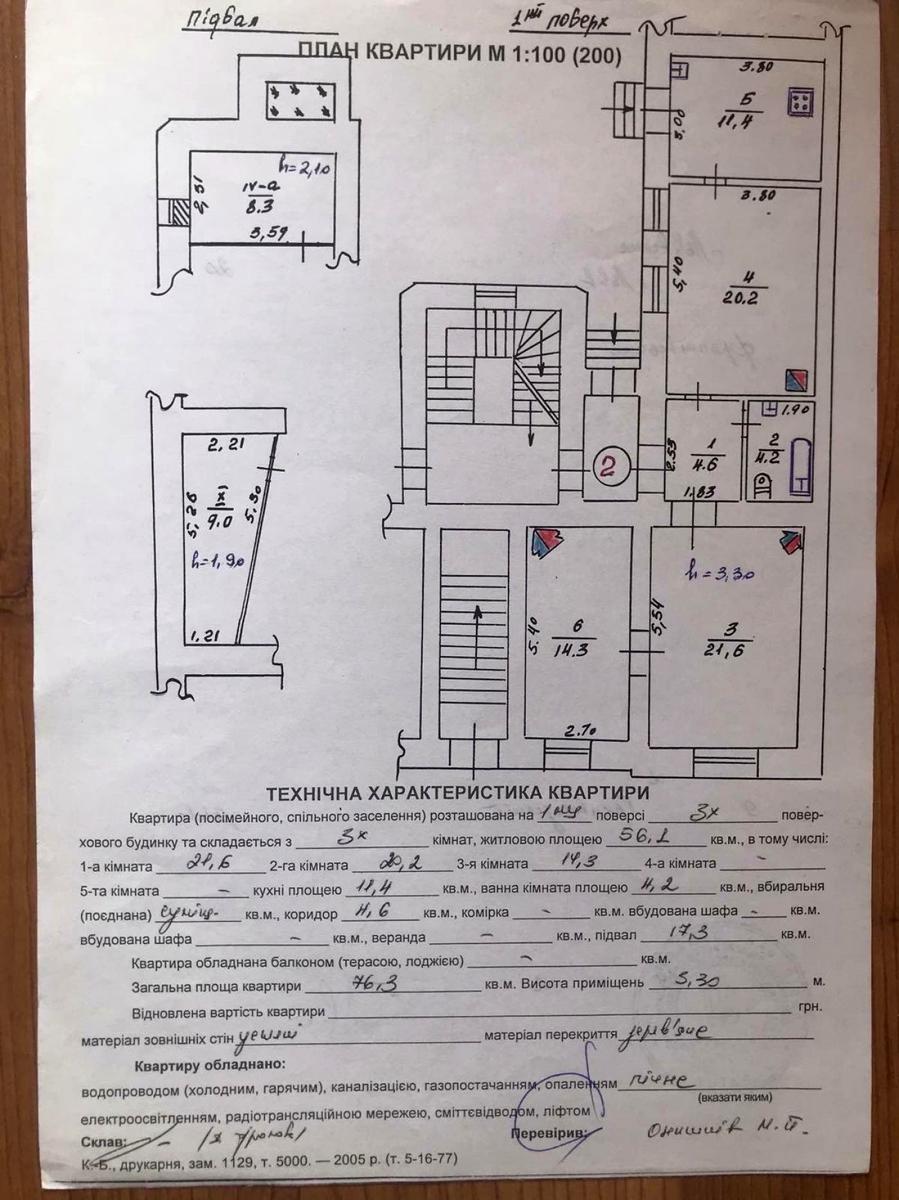 Підвал
1ий поверх
ПЛАН КВАРТИРИ М 1:100 (200)
h=2,10
IV-а
8.3
2,31
3,59
3.80
5
11,4
3,00
3.80
4
20.2
5,40
1.90
2
4.2
1
4.6
2.53
1.83
2
2,21
XI
9.0
5.26
5.30
h=1,90
1,21
h=3,30
3
21,6
5,54
6
14.3
5.40
2.70
ТЕХНІЧНА ХАРАКТЕРИСТИКА КВАРТИРИ
Квартира (посімейного, спільного заселення) розташована на 1му поверсі 3х повер-
хового будинку та складається з 3х кімнат, житловою площею 56,1 кв.м., в тому числі:
1-а кімната 21,6 2-га кімната 20,2 3-я кімната 14,3 4-а кімната -
5-та кімната - кухні площею 11,4 кв.м., ванна кімната площею 4,2 кв.м., вбиральня
(поєднана) суміщ. кв.м., коридор 4,6 кв.м., комірка - кв.м. вбудована шафа - кв.м.
вбудована шафа - кв.м., веранда - кв.м., підвал 17,3 кв.м.
Квартира обладнана балконом (терасою, лоджією) - кв.м.
Загальна площа квартири 76,3 кв.м. Висота приміщень 3,30 м.
Відновлена вартість квартири грн.
матеріал зовнішніх стін матеріал перекриття дерев'яне
Квартиру обладнано:
водопроводом (холодним, гарячим), каналізацією, газопостачанням, опаленням пічне
(вказати яким)
електроосвітленням, радіотрансляційною мережею, сміттєвідводом, ліфтом
Склав: Перевірив: Онишків М.П.
К. Б., друкарня, зам. 1129, т. 5000. — 2005 р. (т. 5-16-77)